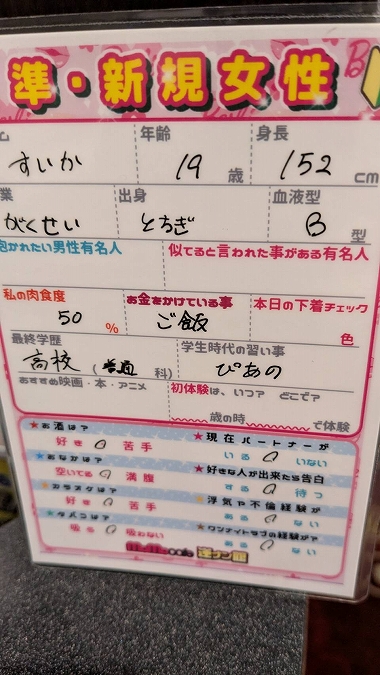 準・新規女性
ム 年齢 身長
すいか 19歳 152cm
業 出身 血液型
がくせい とちぎ B型
抱かれたい男性有名人 似てると言われた事がある有名人
私の肉食度 お金をかけている事 本日の下着チェック
50% ご飯 色
最終学歴 学生時代の習い事
高校(普通科) ぴあの
おすすめ映画・本・アニメ 初体験は、いつ? どこで?
歳の時 で体験
★お酒は? ★現在パートナーが
好き 苦手 いる いない
★おなかは? ★好きな人が出来たら告白
空いてる 満腹 する 待つ
★カラオケは? ★浮気や不倫経験が
好き 苦手 ある ない
★タバコは? ★ワンナイトラブの経験が?
吸う 吸わない ある ない